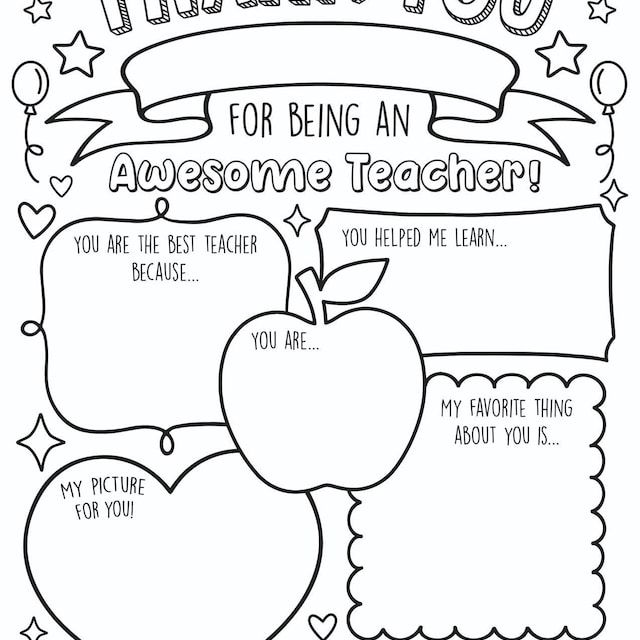 THANK YOU
FOR BEING AN
Awesome Teacher!
YOU ARE THE BEST TEACHER
BECAUSE...
YOU HELPED ME LEARN...
YOU ARE...
MY FAVORITE THING
ABOUT YOU IS...
MY PICTURE
FOR YOU!